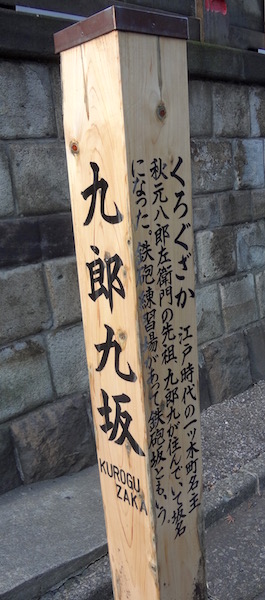 九郎九坂
KUROGU
ZAKA
くろぐざか
江戸時代の一ツ木町名主
秋元八郎左衛門の先祖、九郎九が住んでいて坂名
になった。鉄砲練習場があって鉄砲坂ともいう。